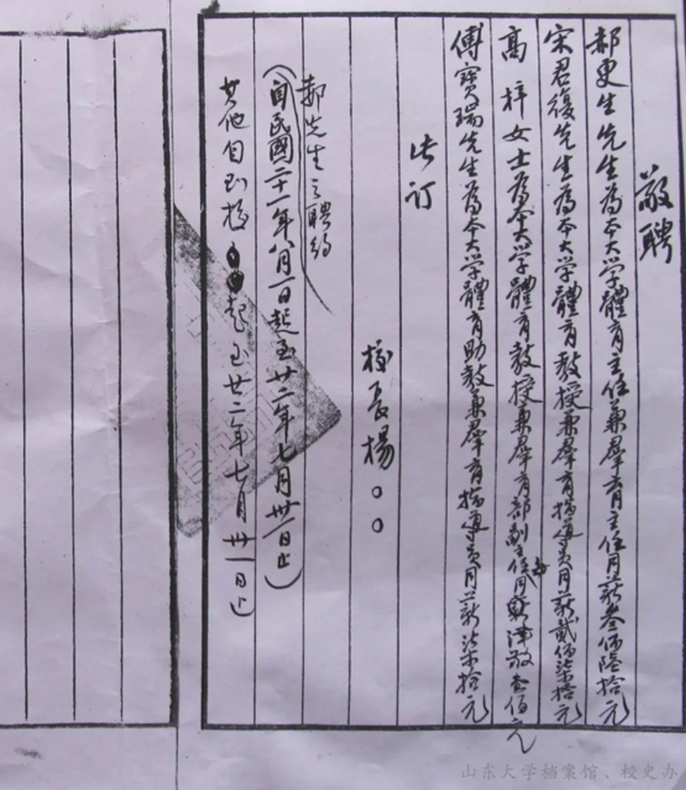 敬聘
郝更生先生為本大学體育主任兼羣育主任月薪叁佰陸拾元
宋君復先生為本大学體育教授兼羣育指導員月薪貳佰柒拾元
高梓女士為本大学體育教授兼羣育部副主任月津敬壹佰元
傅寶瑞先生為本大学體育助教兼羣育指導員月薪柒拾元
此订
校長楊○○
郝先生之聘約
(自民國二十一年八月一日起至廿二年七月卅一日止)
其他自到校起至廿二年七月卅一日止
山东大学档案馆、校史办